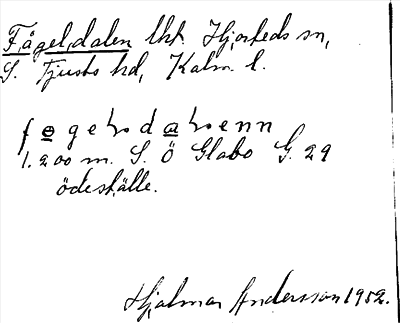 Fågeldalen lht. Hjorteds sn,
S. Tjusts hd, Kalm. l.
1.200 m. S. Ö Glabo G. 29
ödeställe.
Hjalmar Andersson 1952.